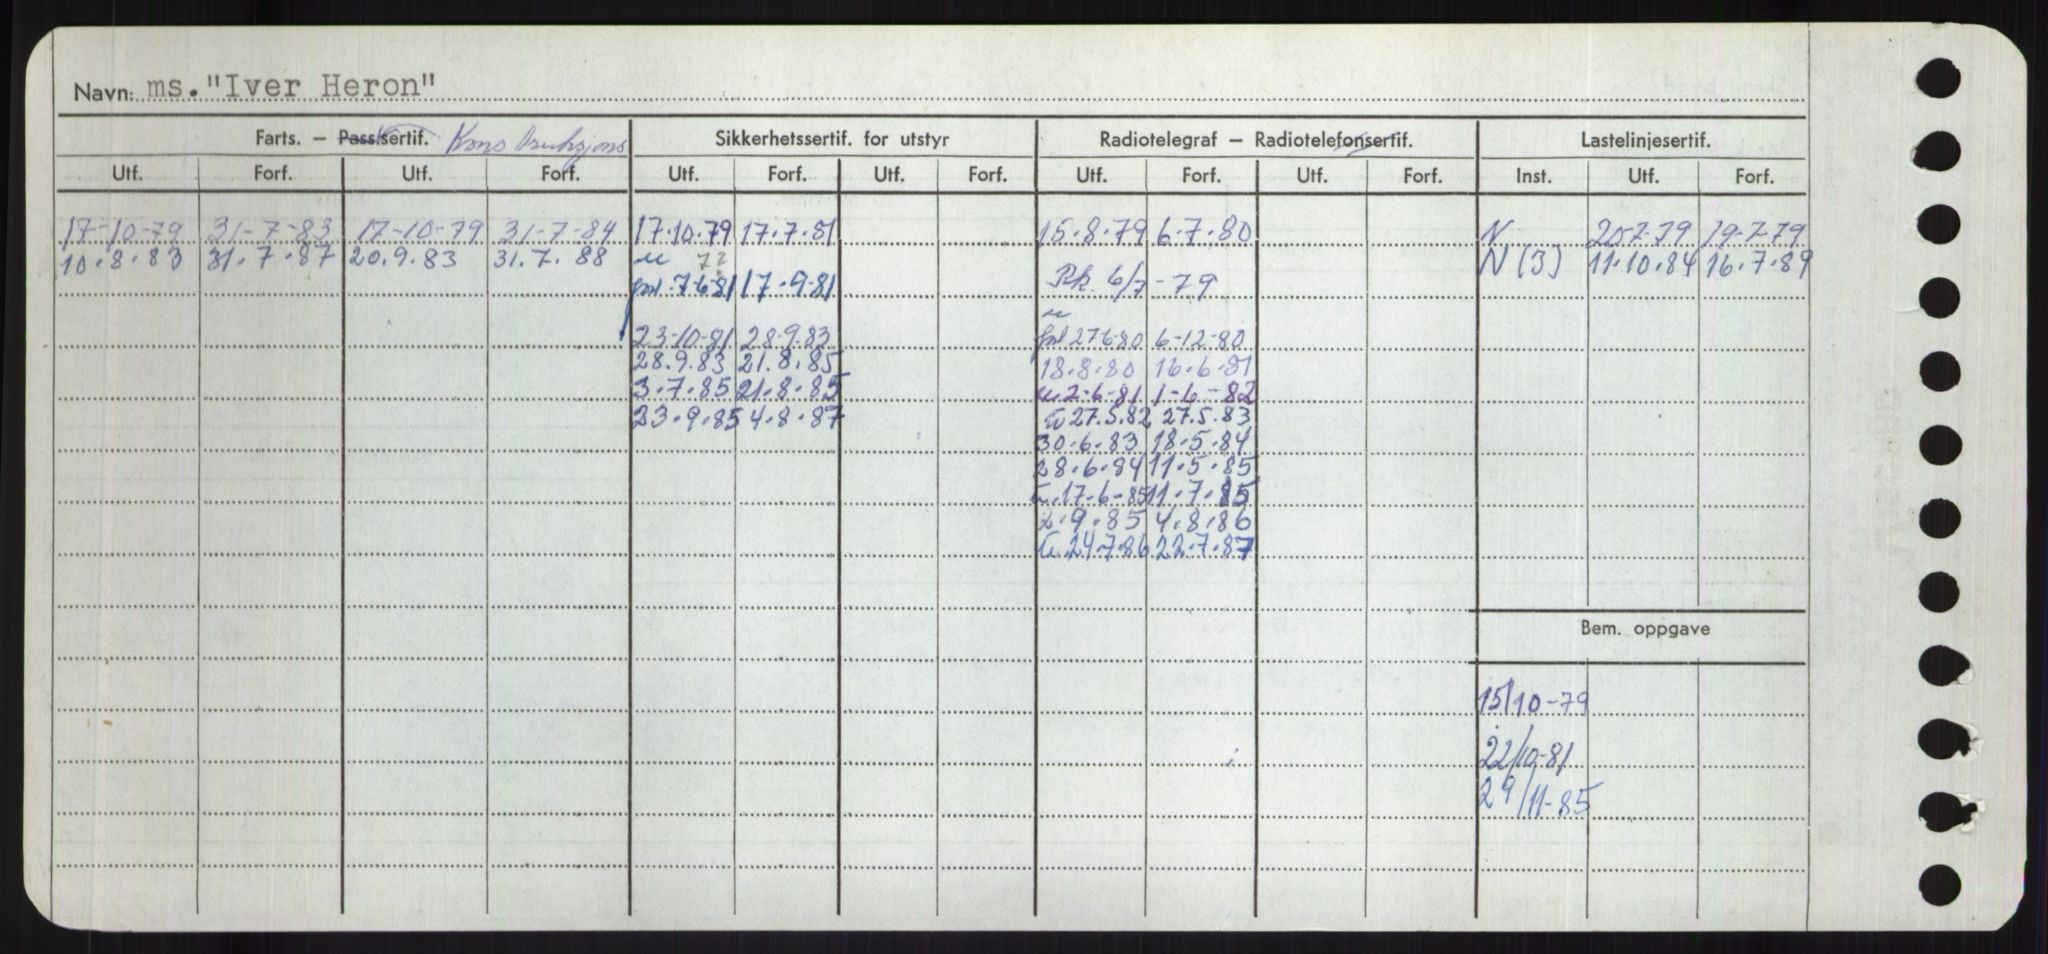 Navn: ms. "Iver Heron"
Farts. – Pass.sertif. Sikkerhetssertif. for utstyr Radiotelegraf – Radiotelefonsertif. Lastelinjesertif.
Utf. Forf. Utf. Forf. Utf. Forf. Utf. Forf. Utf. Forf. Utf. Forf. Inst. Utf. Forf.
17-10-79 31-7-83 17-10-79 31-7-84 17.10.79 17.7.81 15.8.79 6.7.80 N 20-7-79 19-7-79
10.8.83 31.7.87 20.9.83 31.7.88 N (3) 11.10.84 16.7.89
7-6-81 17.9-81 6/7-79
23-10-81 28.9.83 27-6-80 6-12-80
28.9.83 21.8.85 18.8.80 16.6.81
3.7.85 21.8.85 2-6-81 1-6-82
23.9.85 4.8.87 27.5.82 27.5.83
30.6.83 18.5.84
28.6.84 11.5.85
17-6-85 11.7.85
2.9.85 4.8.86
24.7.86 22.7.87
Bem. oppgave
15/10-79
22/10-81
29/11-85